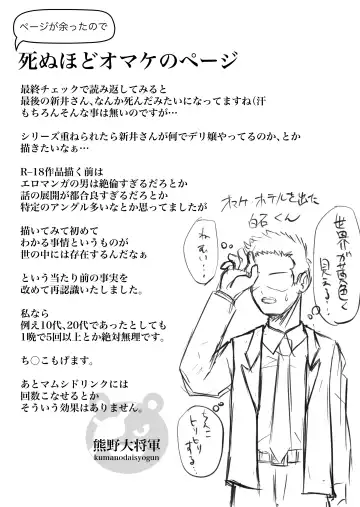 ページが余ったので
死ぬほどオマケのページ
最終チェックで読み返してみると
最後の新井さん、なんか死んだみたいになってますね(汗
もちろんそんな事は無いのですが…
シリーズ重ねられたら新井さんが何でデリ嬢やってるのか、とか
描きたいなぁ…
R-18作品描く前は
エロマンガの男は絶倫すぎるだろとか
話の展開が都合良すぎるだろとか
特定のアングル多いなとか思ってましたが
描いてみて初めて
わかる事情というものが
世の中には存在するんだなぁ
という当たり前の事実を
改めて再認識いたしました。
私なら
例え10代、20代であったとしても
1晩で5回以上とか絶対無理です。
ち〇こもげます。
あとマムシドリンクには
回数こなせるとか
そういう効果はありません。
熊野大将軍
kumanodaisyogun
オマケ ホテルを出た
白石くん
世界が黄色く
見える…
ねむい…
ちんこ
ヒリヒリ
する…